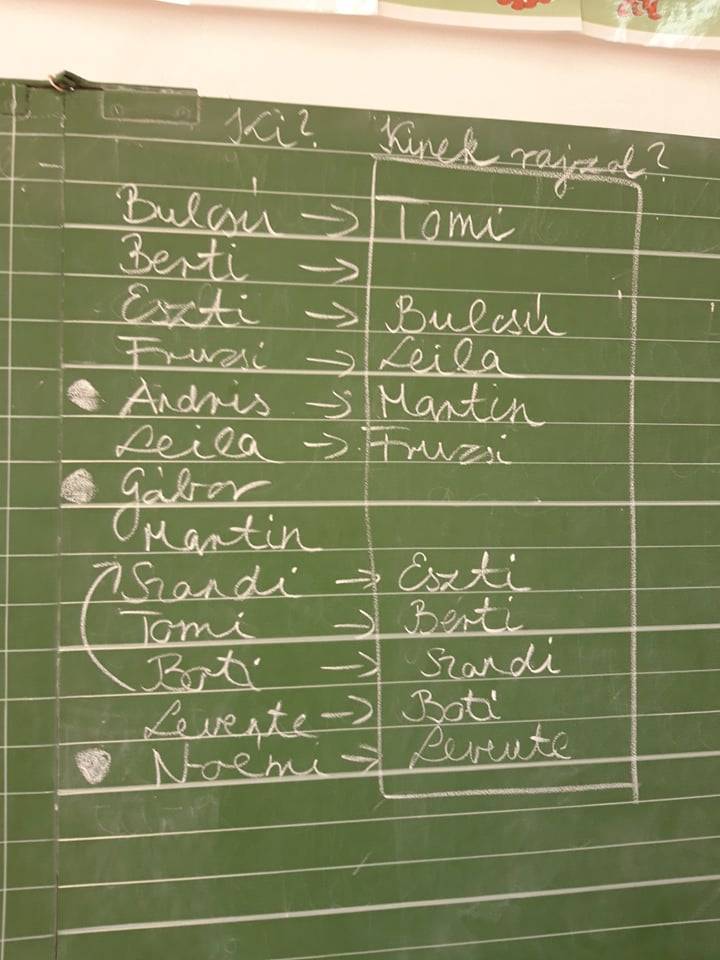 Ki? Kinek rajzol?
Bulcsú → Tomi
Berti →
Eszti → Bulcsú
Fruzsi → Leila
Andris → Martin
Leila → Fruzsi
Gábor
Martin
Szandi → Eszti
Tomi → Berti
Boti → Szandi
Levente → Boti
Noémi → Levente